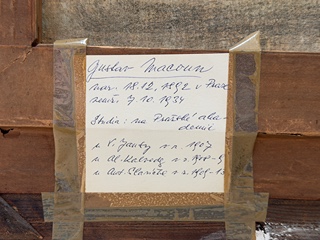 Gustav Macoun
nar. 18.12.1892 v Praze
zemř. 7.10.1934
Studia: na Pražské aka-
demii
u V. Jansy v r. 1907
u Al. Kalvody v r. 1908-9
u Ant. Slavíčka v r. 1909-13